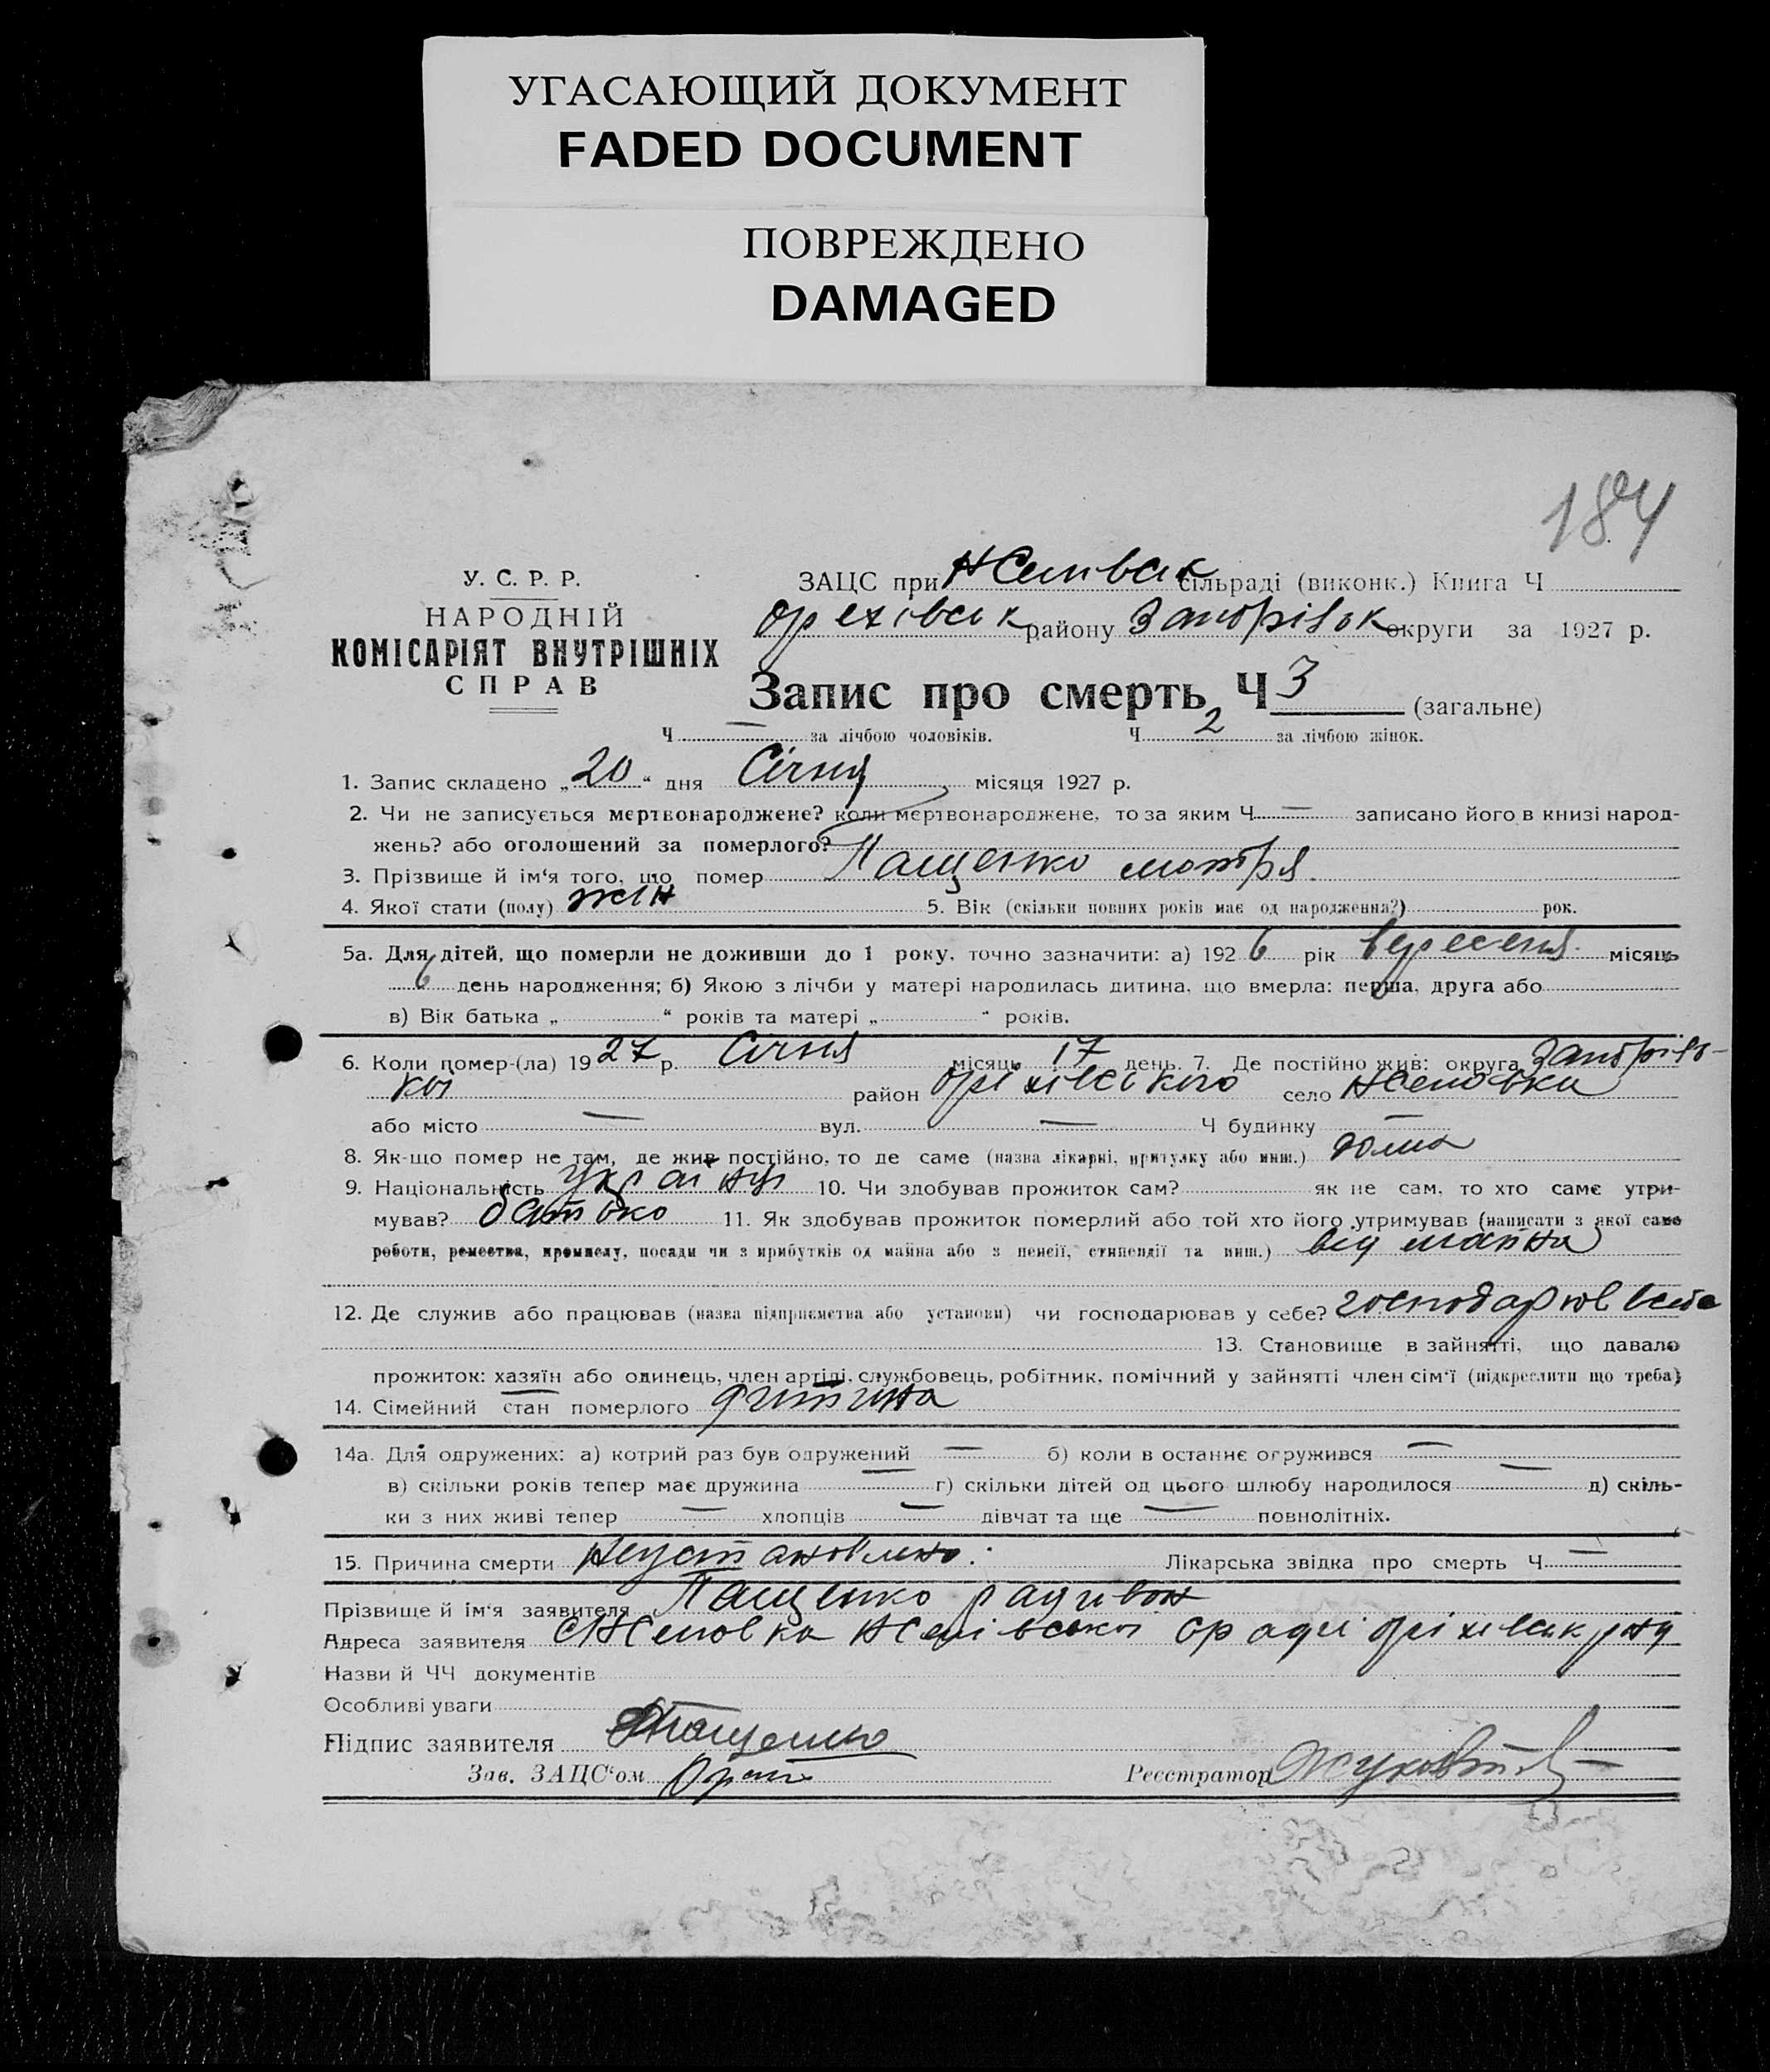 УГАСАЮЩИЙ ДОКУМЕНТ
FADED DOCUMENT
ПОВРЕЖДЕНО
DAMAGED
184
У. С. Р. Р.
НАРОДНІЙ
КОМІСАРІЯТ ВНУТРІШНІХ
СПРАВ
ЗАЦС при сільраді (виконк.) Книга Ч
Орехівськ району Запорізьк округи за 1927 р.
Запис про смерть Ч 3 (загальне)
Ч — за лічбою чоловіків. Ч 2 за лічбою жінок.
1. Запис складено „20“ дня Січня місяця 1927 р.
2. Чи не записується мертвонароджене? коли мертвонароджене, то за яким Ч — записано його в книзі народ-
жень? або оголошений за померлого?
3. Прізвище й ім'я того, що помер Пащенко мотря
4. Якої стати (полу) жін 5. Вік (скільки повних років має од народження?) рок.
5а. Для дітей, що померли не доживши до 1 року, точно зазначити: а) 1926 рік вересеня місяць
6 день народження; б) Якою з лічби у матері народилась дитина, що вмерла: перша, друга або
в) Вік батька „ “ років та матері „ “ років.
6. Коли помер-(ла) 1927 р. Січня місяць 17 день. 7. Де постійно жив: округа Запорізь-
кої район Оріхівського село
або місто — вул. — Ч будинку —
8. Як-що помер не там, де жив постійно, то де саме (назва лікарні, притулку або инш.) дома
9. Національність 10. Чи здобував прожиток сам? як не сам, то хто саме утри-
мував? батько 11. Як здобував прожиток померлий або той хто його утримував (написати з якої само
роботи, ремества, промислу, посади чи з прибутків од майна або з пенсії, стипендії та инш.) від майна
12. Де служив або працював (назва підприємства або установи) чи господарював у себе? господарював
13. Становище в зайнятті, що давало
прожиток: хазяїн або одинець, член артілі, службовець, робітник, помічний у зайнятті член сім'ї (підкреслити що треба)
14. Сімейний стан померлого дитина
14а. Для одружених: а) котрий раз був одружений — б) коли в останнє огружився —
в) скільки років тепер має дружина — г) скільки дітей од цього шлюбу народилося — д) скіль-
ки з них живі тепер — хлопців — дівчат та ще — повнолітніх.
15. Причина смерти Неустановлено. Лікарська звідка про смерть Ч —
Прізвище й ім'я заявителя Пащенко радивон
Адреса заявителя
Назви й ЧЧ документів
Особливі уваги
Підпис заявителя Пащенко
Зав. ЗАЦС'ом
Реєстратор